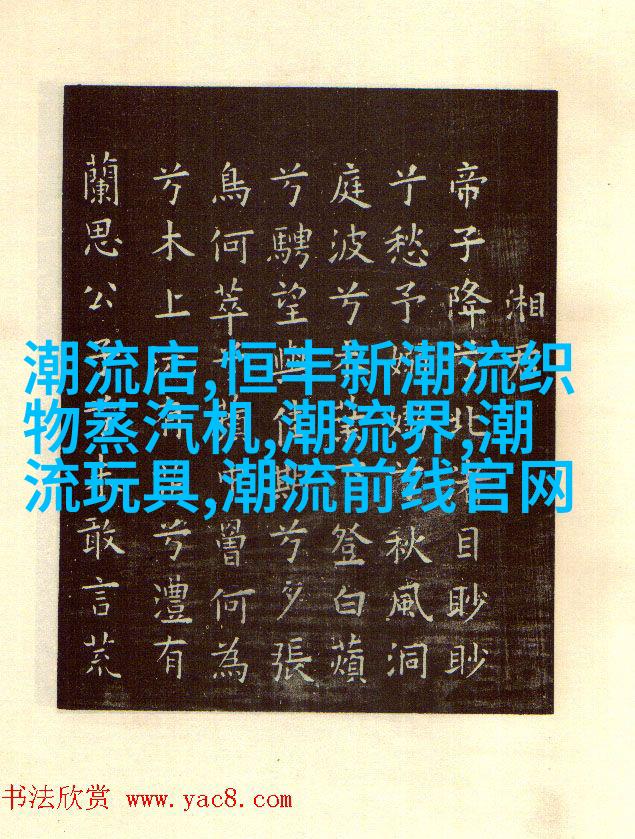 湘
帝子降兮北渚目眇眇
兮愁予嫋嫋兮秋風洞
庭波兮葉下登白蘋
兮騁望與佳期兮夕張
鳥何萃兮蘋中罾何為
兮木上沅有兮澧有
蘭思公子兮未敢言荒
潮流店,恒丰新潮流织
物蒸汽机,潮流界,潮
流玩具,潮流前线官网
书法欣赏 www.yac8.com